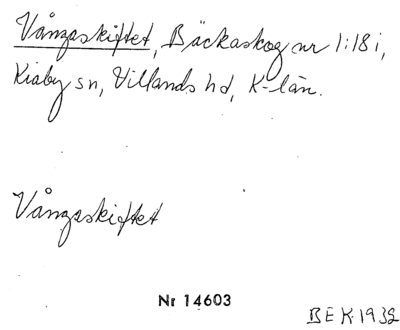 Vångaskiftet, Bäckaskog nr 1:18 i,
Kiaby sn, Villands hd, K-län.
Vångaskiftet
Nr 14603
BEK 1932